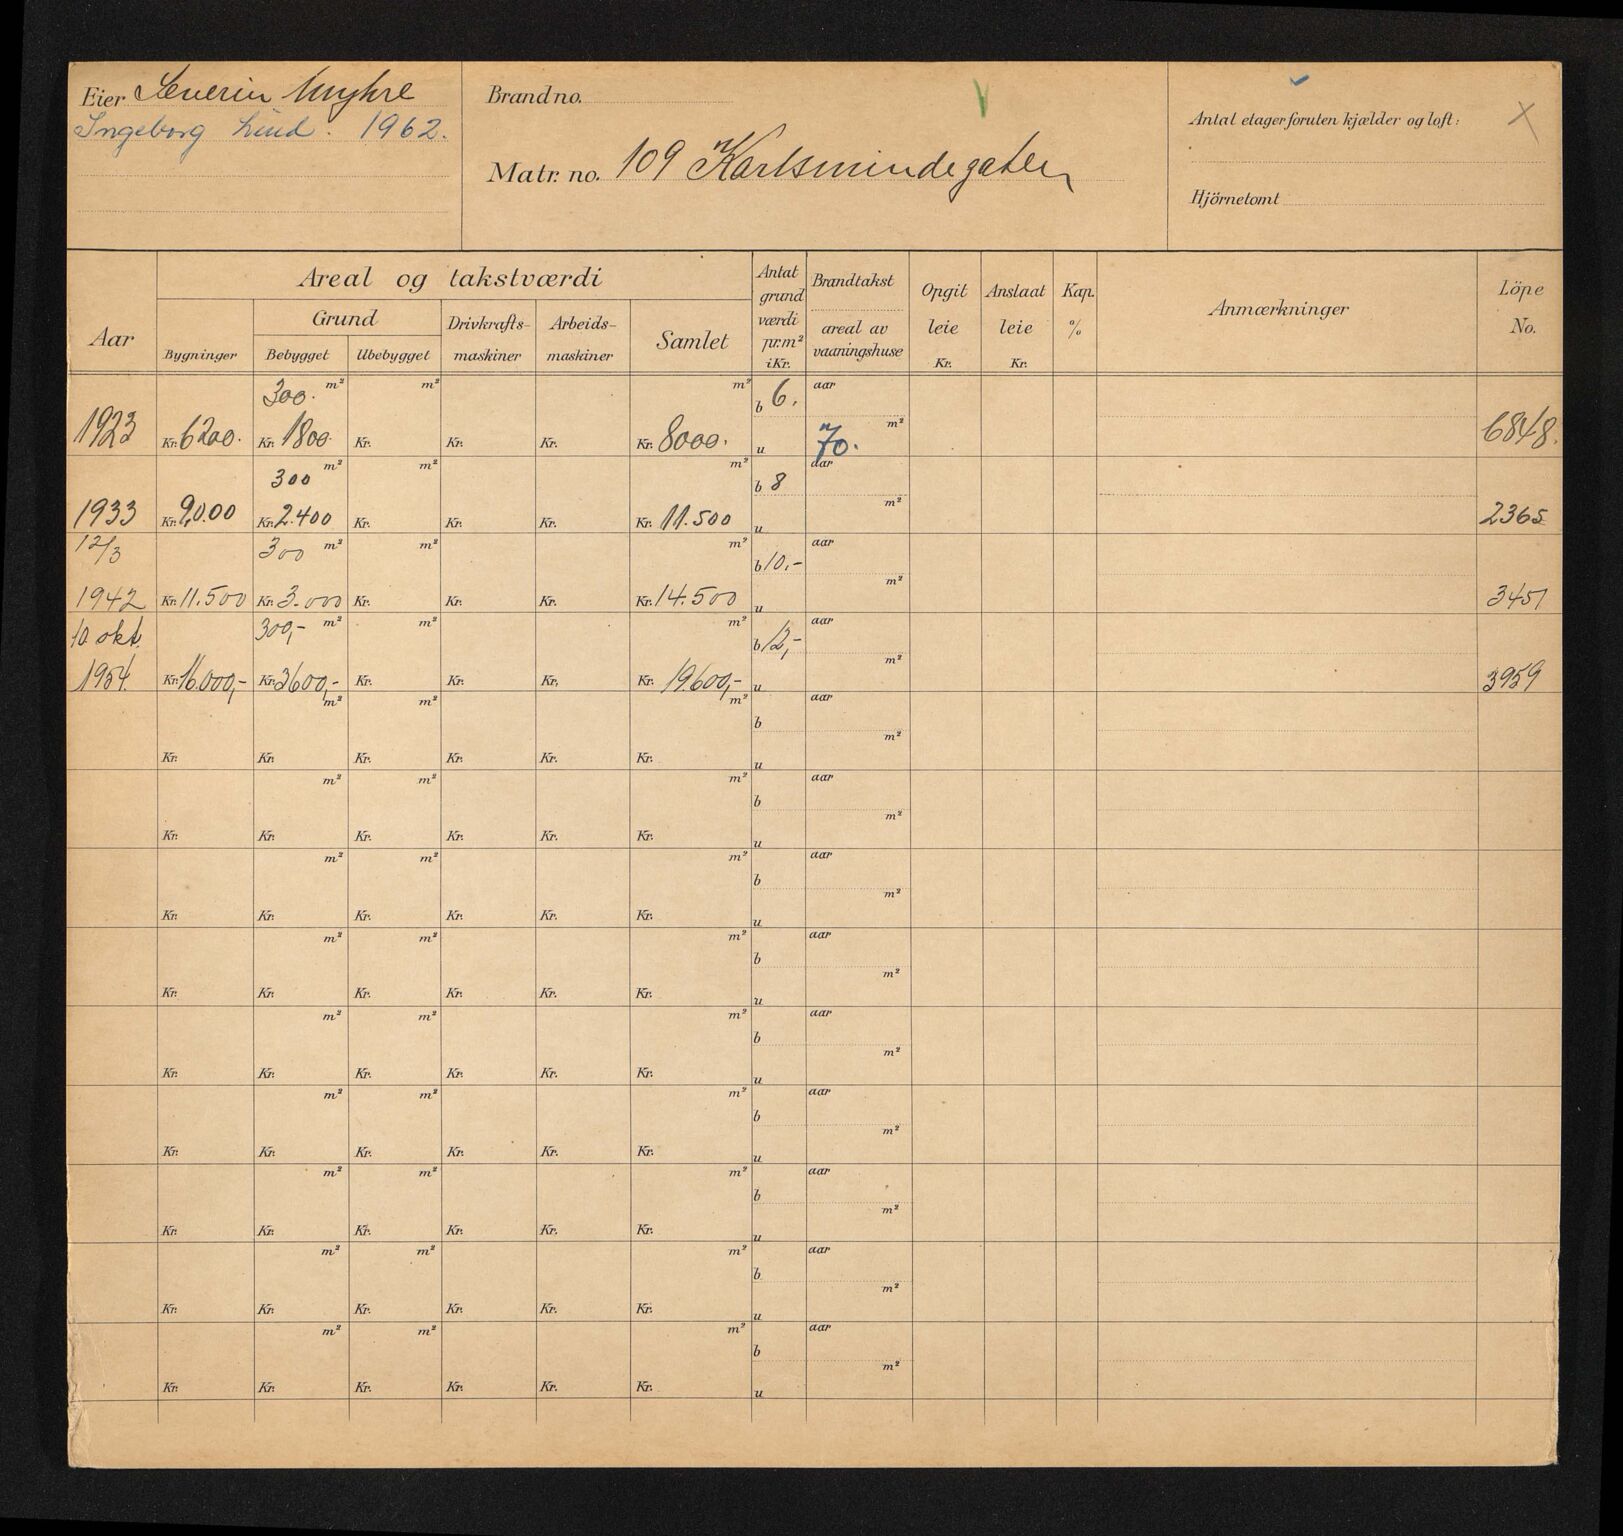 Eier Severin Myhre
Ingeborg Lind. 1962.
Brand no.
Matr. no. 109 Karlsmindegaten
Antal etager foruten kjælder og loft:
X
Hjörnetomt
Aar
Areal og takstværdi
Bygninger
Grund
Bebygget
Ubebygget
Drivkrafts-
maskiner
Arbeids-
maskiner
Samlet
Antat
grund
værdi
pr.m²
i Kr.
Brandtakst
areal av
vaaningshuse
Opgit
leie
Kr.
Anslaat
leie
Kr.
Kap.
%
Anmærkninger
Löpe
No.
300. m² m² m² b 6. aar
1923 Kr. 6200. Kr. 1800. Kr. Kr. Kr. Kr. 8000. u 70. m² 6848.
300 m² m² m² b 8 aar
1933 Kr. 9.000 Kr. 2.400 Kr. Kr. Kr. Kr. 11.500 u m² 2365
12/3 300 m² m² m² b 10.- aar
1942 Kr. 11.500 Kr. 3.000 Kr. Kr. Kr. Kr. 14.500 u m² 3451
10. okt. 300,- m² m² m² b 12,- aar
1954. Kr. 16.000,- Kr. 3600,- Kr. Kr. Kr. Kr. 19.600,- u m² 3959
m² m² m² b aar
Kr. Kr. Kr. Kr. Kr. Kr. u m²
m² m² m² b aar
Kr. Kr. Kr. Kr. Kr. Kr. u m²
m² m² m² b aar
Kr. Kr. Kr. Kr. Kr. Kr. u m²
m² m² m² b aar
Kr. Kr. Kr. Kr. Kr. Kr. u m²
m² m² m² b aar
Kr. Kr. Kr. Kr. Kr. Kr. u m²
m² m² m² b aar
Kr. Kr. Kr. Kr. Kr. Kr. u m²
m² m² m² b aar
Kr. Kr. Kr. Kr. Kr. Kr. u m²
m² m² m² b aar
Kr. Kr. Kr. Kr. Kr. Kr. u m²
m² m² m² b aar
Kr. Kr. Kr. Kr. Kr. Kr. u m²